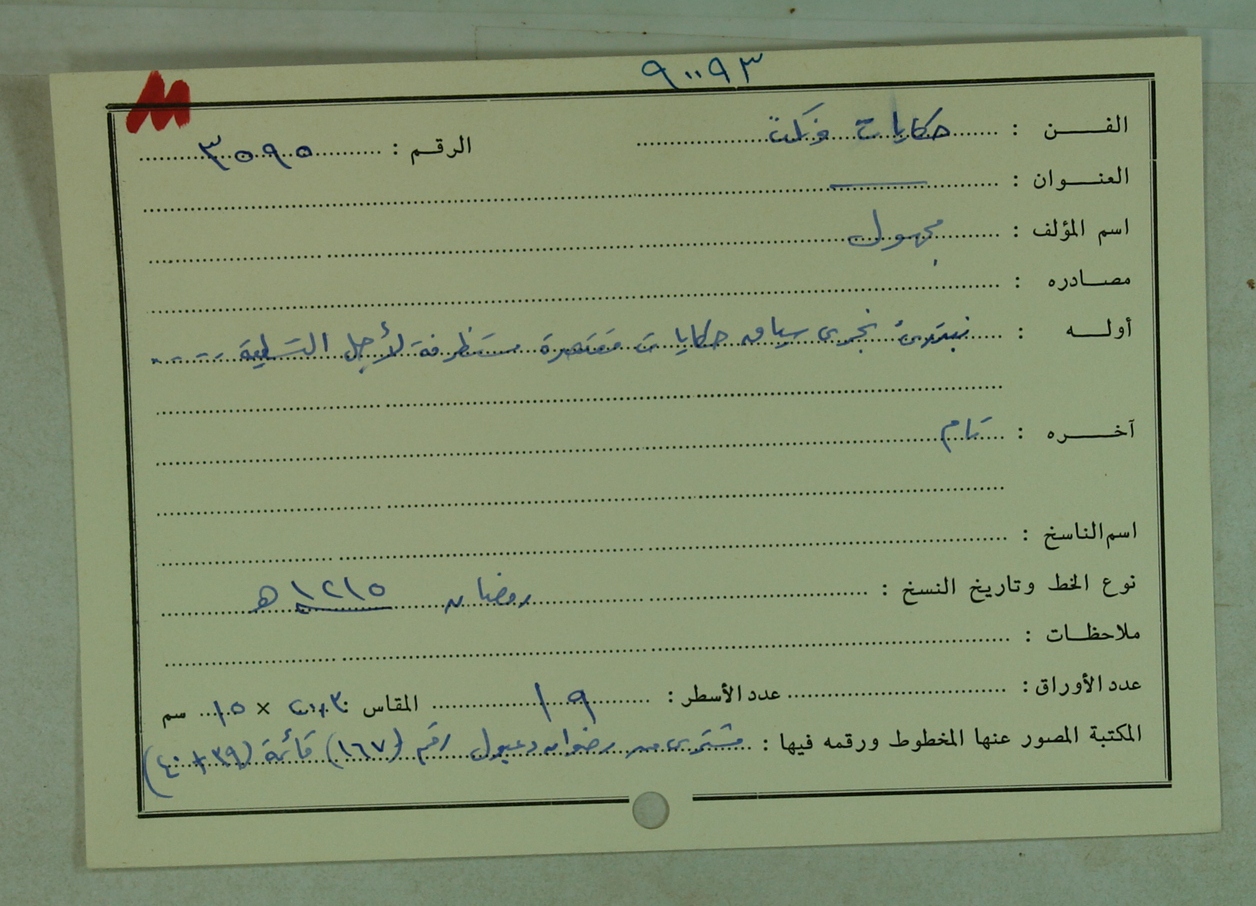 ٩٠٠٩٣
الفــن : حكايات
الرقم : ٣٥٩٥
العنــوان :
اسم المؤلف : مجهول
مصــادره :
أولــه : نبتدئ نجرى سياق حكايات مختصرة مستظرفة لأجل التسلية ....
آخــره : تمام
اسم الناسخ :
نوع الخط وتاريخ النسخ : رمضان ١٢١٥ هـ
ملاحظــات :
عدد الأوراق : عدد الأسطر : ١٩ المقاس × ١٥ سم
المكتبة المصور عنها المخطوط ورقمه فيها : مشترى من رضوان دعبول رقم (١٦٧) قائمة (٣٩ + ٤٠)